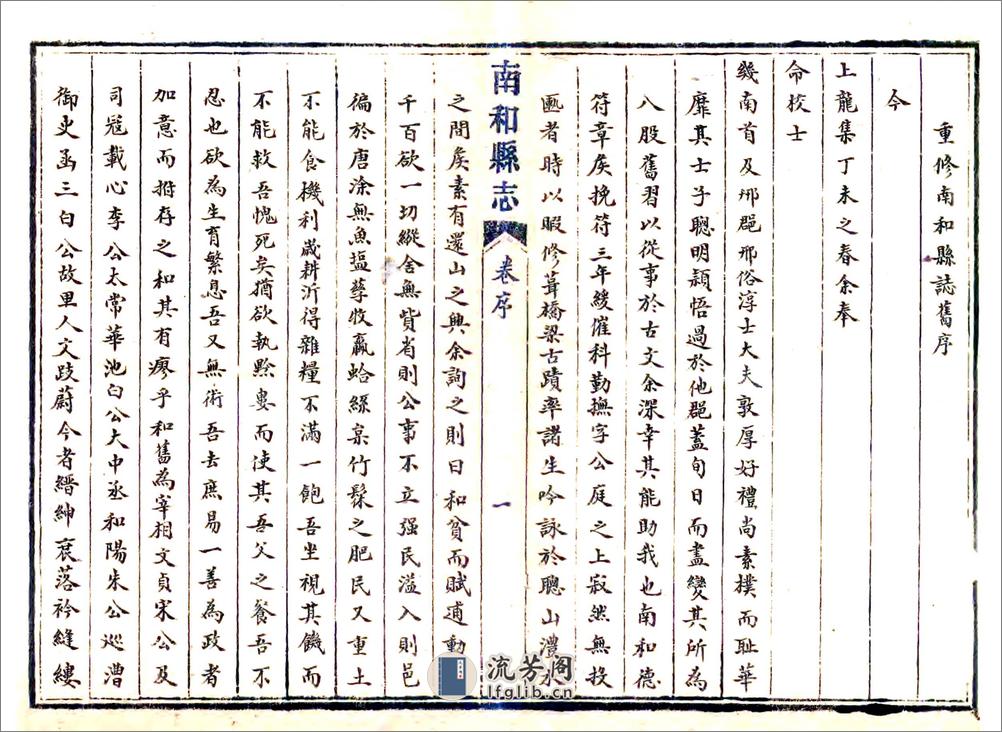 重修南和縣誌舊序
今
上龍集丁未之春余奉
命校士
畿南首及邢郡邢俗淳士大夫敦厚好禮尚素樸而耻華
靡其士子聰明穎悟過於他郡蓋旬日而盡變其所為
八股舊習以從事於古文余深幸其能助我也南和德
符章矦挽符三年緩催科勤撫字公庭之上寂然無投
匭者時以暇修葺橋梁古蹟率諸生吟詠於聰山澧水
南和縣志
卷序
一
之間矦素有還山之興余詢之則曰和貧而賦逋動
千百欲一切縱舍無貲省則公事不立强民溢入則邑
徧於唐涂無魚塩蔈牧蠃蛤絲枲竹䰍之肥民又重土
不能食機利歲耕沂得雜糧不滿一飽吾坐視其饑而
不能救吾愧死矣猶欲執黔婁而使其吾父之養吾不
忍也欲為生育繁息吾又無術吾去庶易一善為政者
加意而拊存之和其有瘳乎和舊為宰相文貞宋公及
司寇載心李公太常華池白公大中丞和陽朱公巡漕
御史函三白公故里人文跂蔚今者縉紳衰落衿縫縷
流芳阁
lfglib.cn